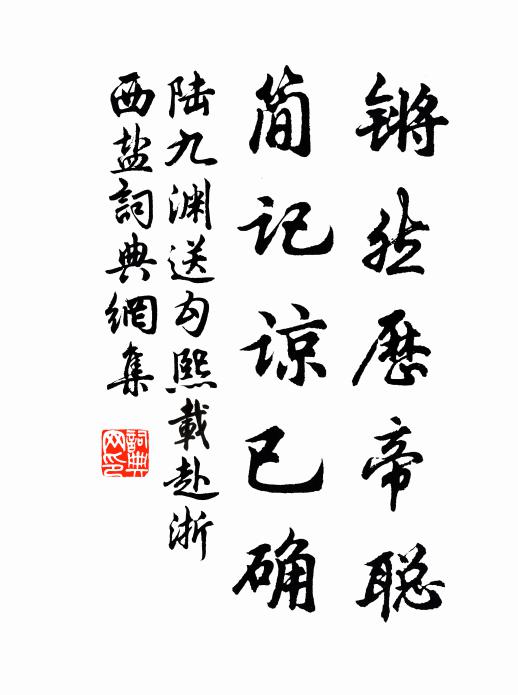 锵然历帝聪
简记谅已确
陆九渊送勾熙載赴浙
西盐詞典網集
詞典
网印